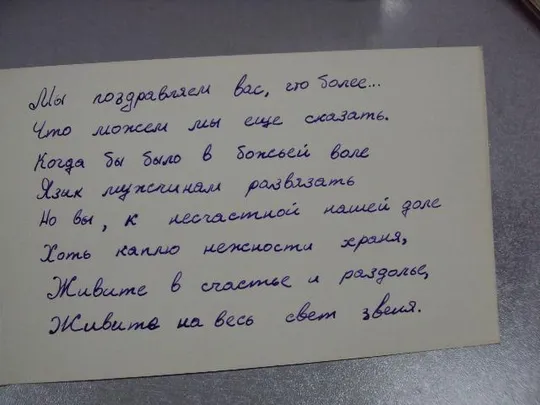 Мы поздравляем вас, что более...
Что можем мы еще сказать.
Когда бы было в божьей воле
Язик мужчинам развязать
Но вы, к несчастной нашей доле
Хоть каплю нежности храня,
Живите в счастье и раздолье,
Живите на весь свет звеня.